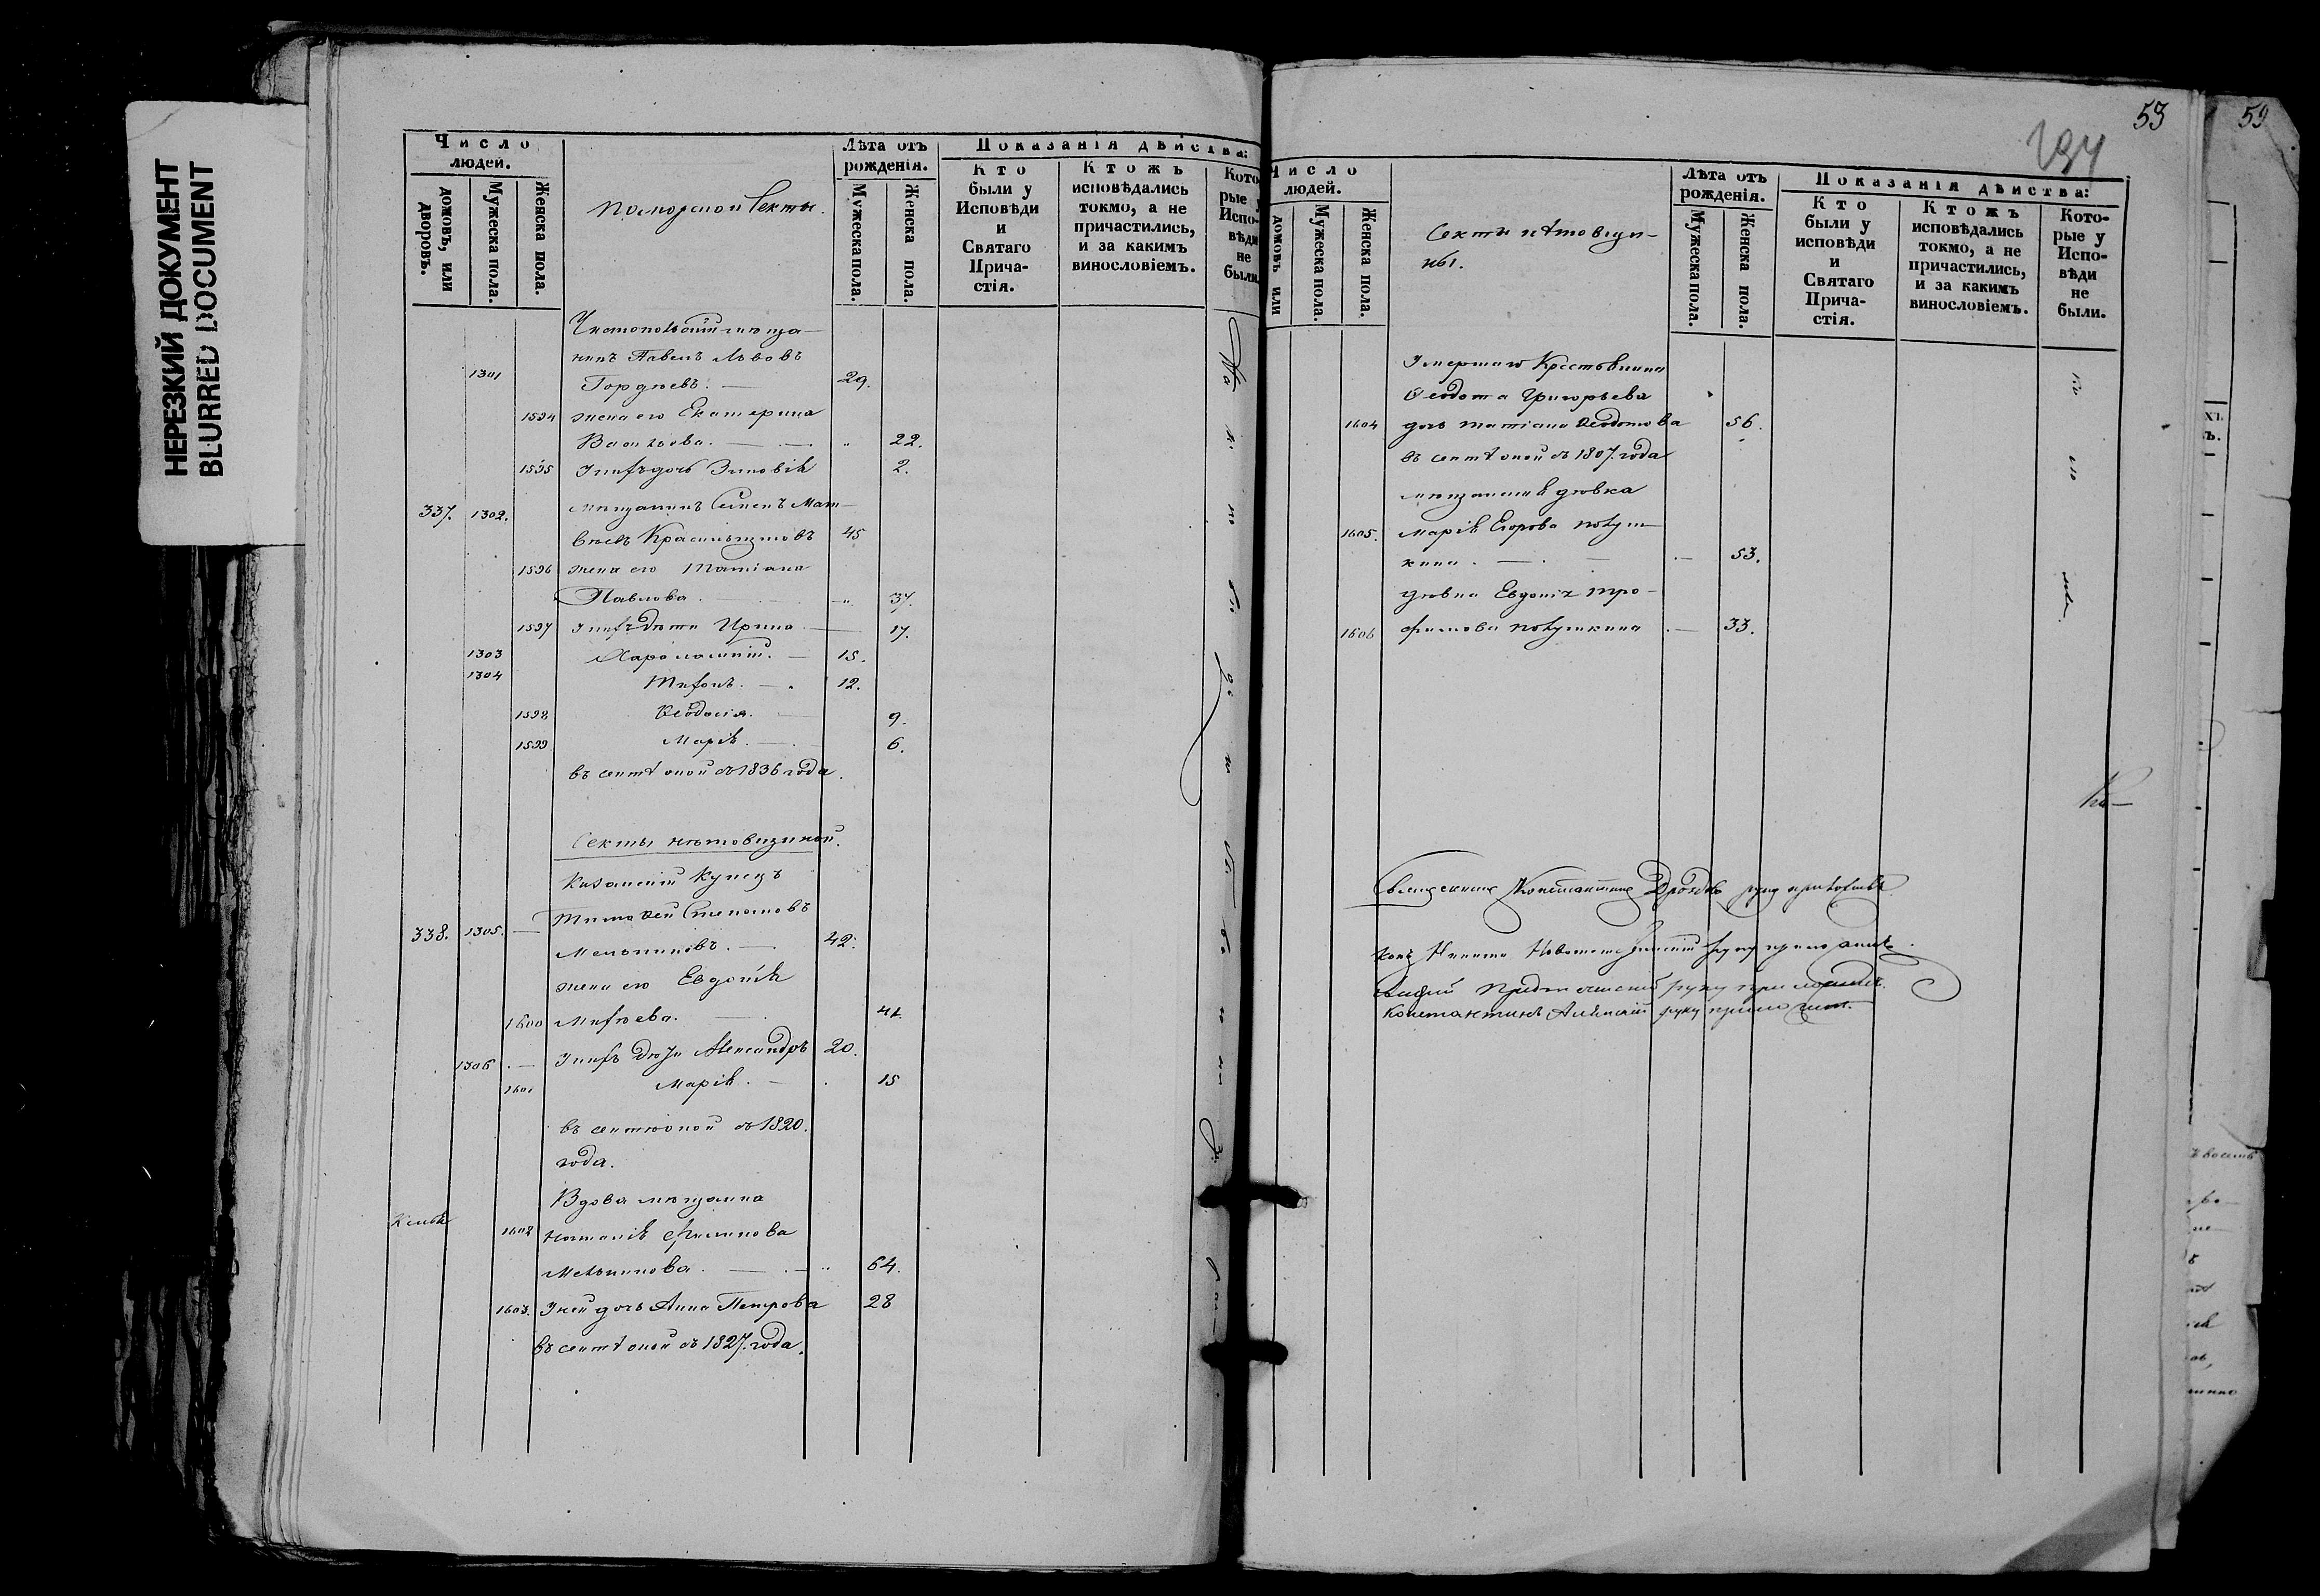 НЕРЕЗКИЙ ДОКУМЕНТ
BLURRED DOCUMENT
Число
людей.
домовъ, или
дворовъ.
Мужеска пола.
Женска пола.
Поморской Секты.
Лѣта отъ
рожденія.
Мужеска пола.
Женска пола.
Показанія дѣйства:
Кто
были у
Исповѣди
и
Святаго
Прича-
стія.
Ктожъ
исповѣдались
токмо, а не
причастились,
и за какимъ
винословіемъ.
Кото-
рые у
Испо-
вѣди
не
были.
Чистопольскій мѣща-
нинъ Павелъ Львовъ
1301 Гордѣевъ. 29.
1594 жена его Екатерина
Васильева. 22.
1595 У нихъ дочь Зиновія 2.
337. 1302. мѣщанинъ Семенъ Мат-
вѣевъ Красильниковъ 45
1596 жена его Татіана
Павлова. 37.
1597 У нихъ дѣти Ирина 17.
1303 Харлампій. 15.
1304 Тихонъ. 12.
1598 Ѳеодосія. 9.
1599 Марія. 6.
въ сектѣ оной съ 1836 года.
Секты нѣтовщиной.
Казанскій Купецъ
338. 1305. Тимоѳей Степановъ
Мельниковъ. 42.
жена его Евдокія
1600 Михѣева. 41.
1306 У нихъ дѣти Александръ 20.
1601 Марія. 15
въ сектѣ оной съ 1820.
года.
Вдова мѣщанка
1602 Наталія Филипова
Мельникова. 64.
1603. У ней дочь Анна Петрова 28
въ сектѣ оной съ 1827. года.
53
59
194
Число
людей.
домовъ или
Мужеска пола.
Женска пола.
Секты нѣтовщи-
ны.
Лѣта отъ
рожденія.
Мужеска пола.
Женска пола.
Показанія дѣйства:
Кто
были у
исповѣди
и
Святаго
Прича-
стія.
Ктожъ
исповѣдались
токмо, а не
причастились,
и за какимъ
винословіемъ.
Кото-
рые у
Испо-
вѣди
не
были.
Умершаго Крестьянина
Ѳеодота Григорьева
1604 дочь Татіана Ѳеодотова 56.
въ сектѣ оной съ 1807. года
мѣщанская дѣвка
1605. Марія Егорова
кина. 53.
дѣвка Евдокія Тро-
1606 фимова 33.
Священникъ Константинъ Дроздовъ руку приложилъ
Никита руку приложилъ.
Предтеченскій руку приложилъ.
Константинъ руку приложилъ.